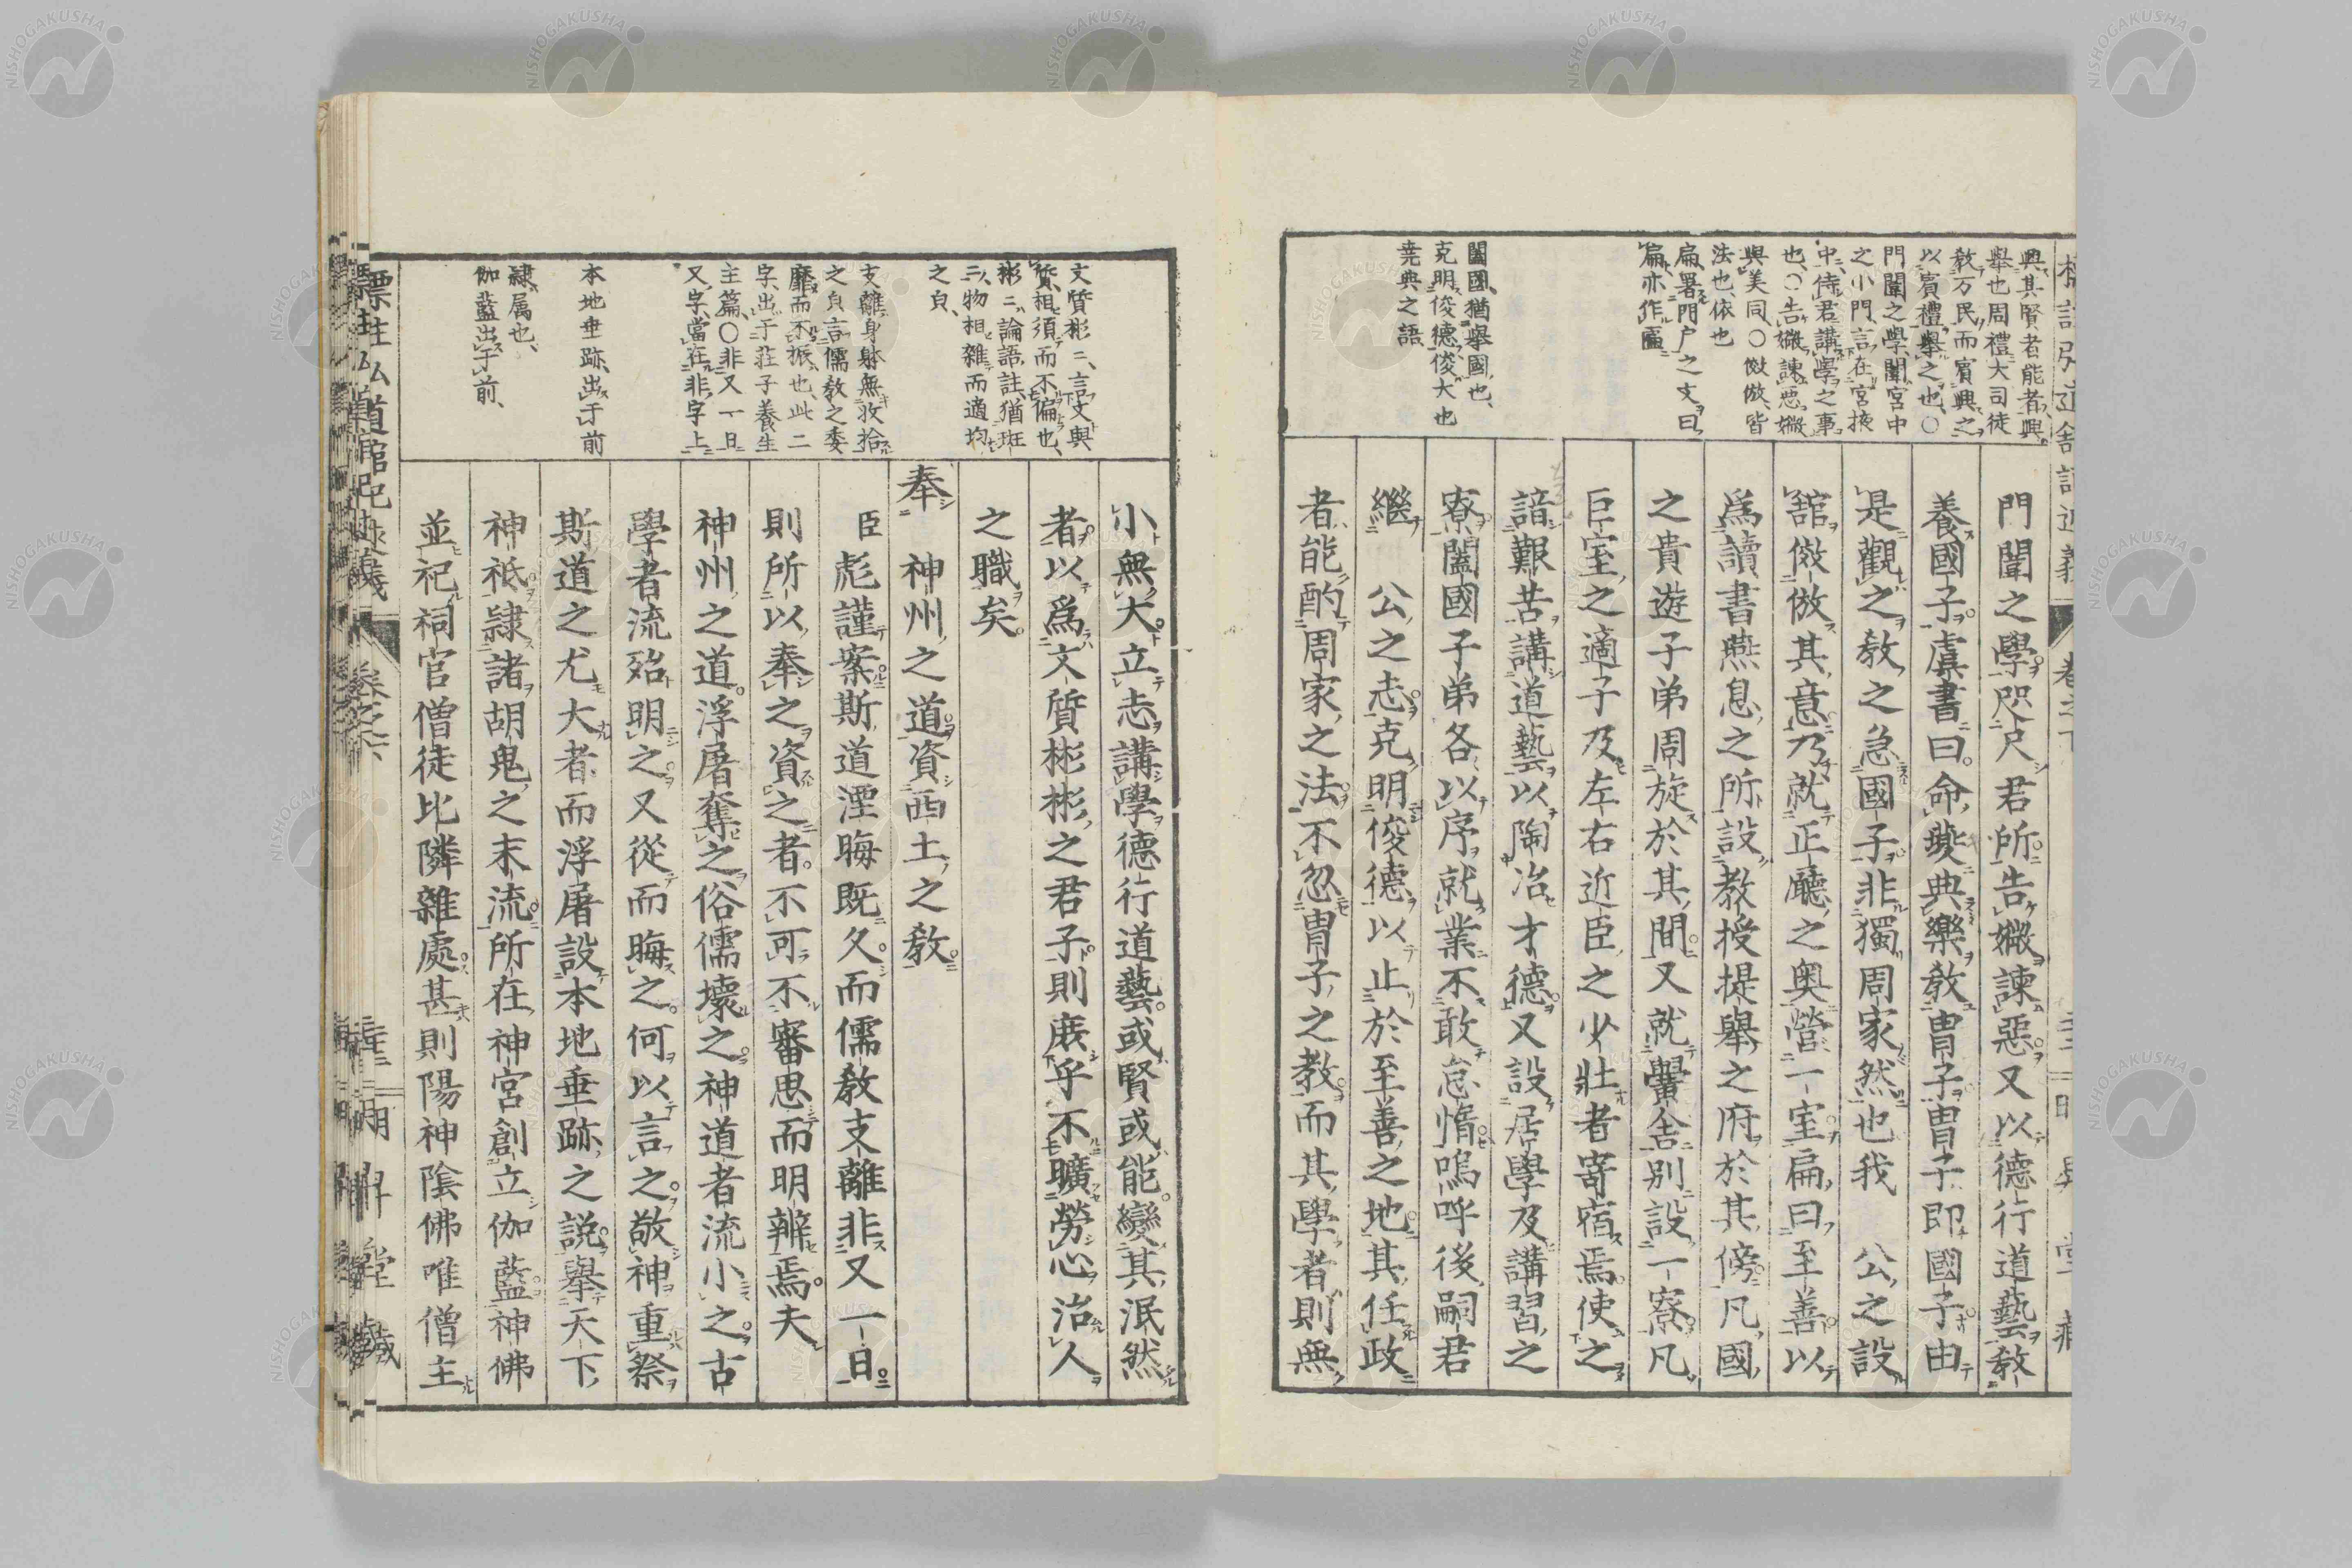 興其賢者能者興
舉也周禮大司徒
教万民而賓興之
以賓禮擧之也〇
門闈之學闈宮中
之小門言在宮掖
中侍君講學之事
也〇告媺諫惡媺
與美同〇傚倣皆
法也依也
扁署門戶之文曰
扁亦作匾
闔國猶擧國也、
克明俊德俊大也
堯典之語
門闈之學咫尺君所告媺諫惡又以德行道藝教
養國子虞書曰命夔典樂教冑子冑子即國子由
是觀之教之急國子非獨周家然也我 公之設
舘傚倣其意乃就正廳之奧營一室扁曰至善以
爲讀書燕息之所設教授提舉之府於其傍凡國
之貴遊子弟周旋於其間又就黌舍別設一寮凡
巨室之適子及左右近臣之少壯者寄宿焉使之
諳艱苦講道藝以陶冶才德又設居學及講習之
寮闔國子弟各以序就業不敢怠惰嗚呼後嗣君
繼 公之志克明俊德以止於至善之地其任政
者能酌周家之法不忽冑子之教而其學者則無
文質彬〻、言文與
質相須而不偏也、
彬〻論語註猶班
〻物相雜而適均
之㒵、
支離身躰無收拾
之㒵言儒教之委
靡而不振也、此二
字出于莊子養生
主篇〇非又一日
又字當在非字上
本地垂跡出于前
隷属也、
伽藍出于前、
小無大立志講學德行道藝或賢或能變其泯然
者以爲文質彬彬之君子則庶乎不曠勞心治人
之職矣
奉 神州之道資西土之教
臣彪謹案斯道湮晦既久而儒教支離非又一日
則所以奉之資之者不可不審思而明辨焉夫
神州之道浮屠奪之俗儒壞之神道者流小之古
學者流殆明之又從而晦之何以言之敬神重祭
斯道之尤大者而浮屠設本地垂跡之説擧天下
神祇隷諸胡鬼之末流所在神宮創立伽藍神佛
並祀祠官僧徒比隣雜處甚則陽神陰佛唯僧主